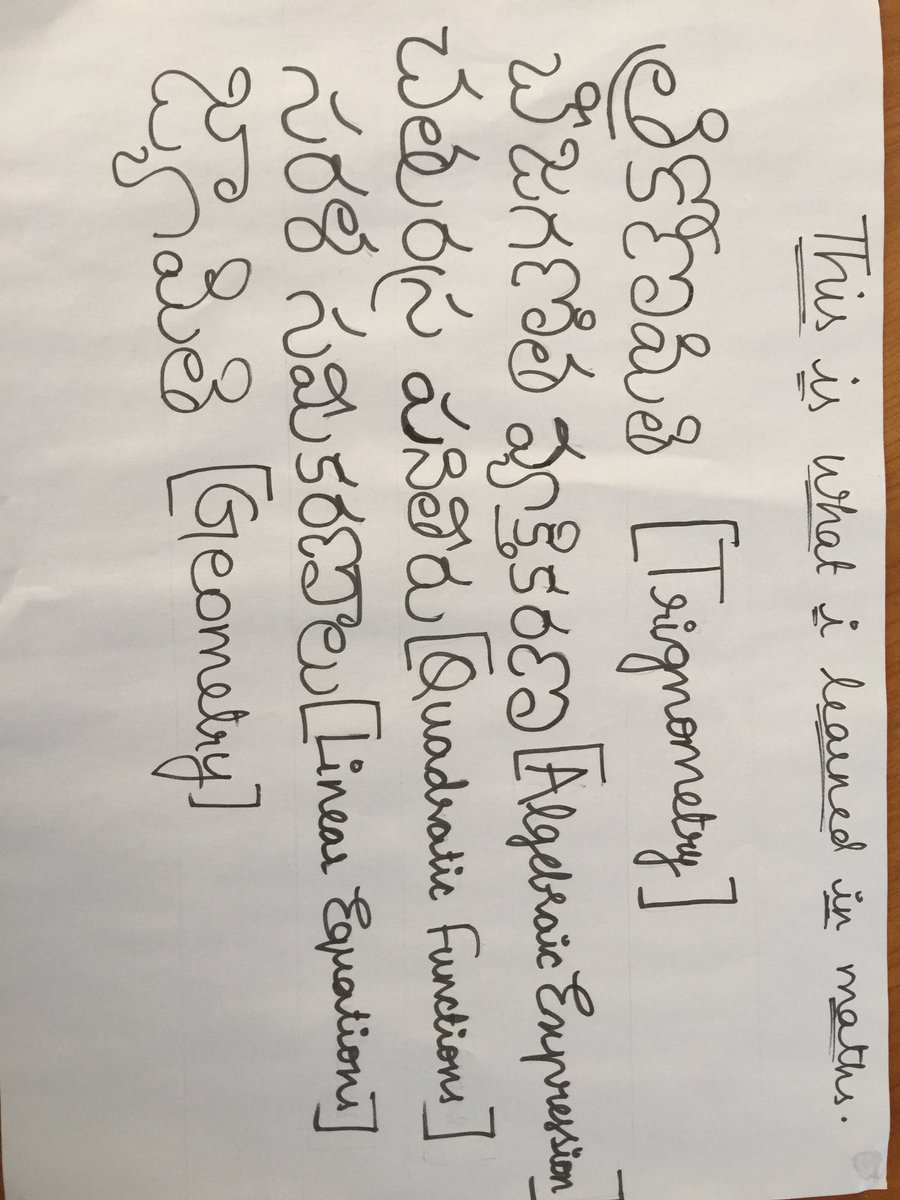 This is what i learned in maths.
త్రికోణమితి [Trignometry]
బీజగణిత వ్యక్తీకరణ [Algebraic Enpression]
చతురస్ర పనితీరు [Quadratic Functions]
సరళ సమీకరణాలు [Linear Equations]
జ్యామితి [Geometry]